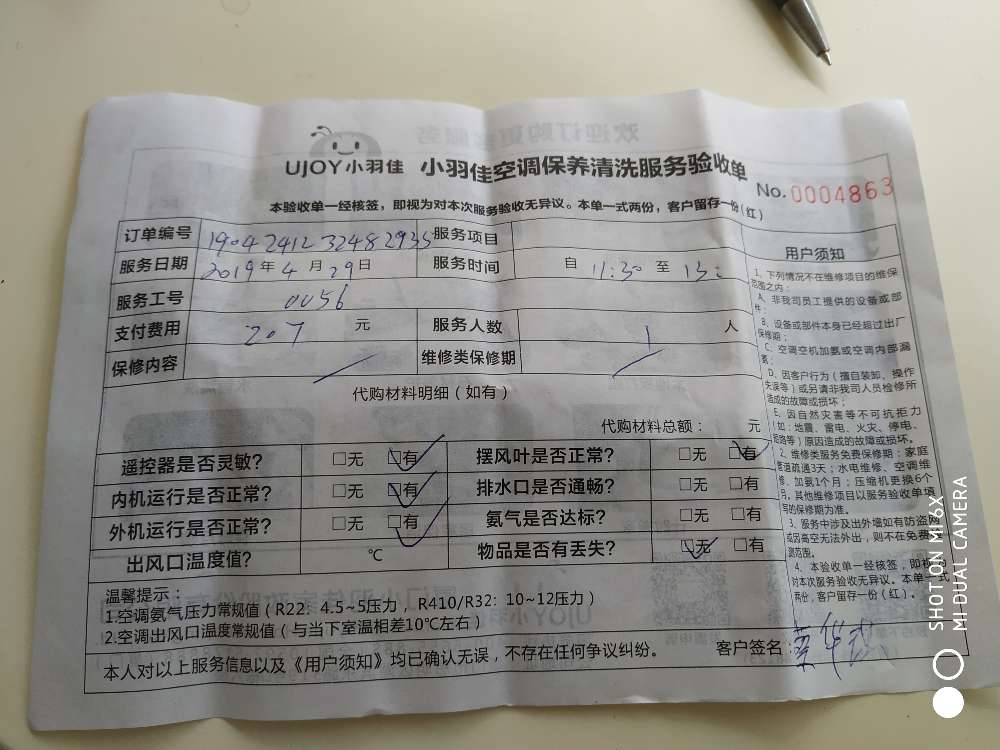 UJOY小羽佳 小羽佳空调保养清洗服务验收单
No. 0004863
本验收单一经核签，即视为对本次服务验收无异议。本单一式两份，客户留存一份（红）
订单编号 1904241232482935 服务项目
服务日期 2019年4月29日 服务时间 自 11:30 至 13:
服务工号 0056
支付费用 207 元 服务人数 1 人
保修内容 / 维修类保修期 /
代购材料明细（如有）
代购材料总额： 元
遥控器是否灵敏? □无 □有 摆风叶是否正常? □无 □有
内机运行是否正常? □无 □有 排水口是否通畅? □无 □有
外机运行是否正常? □无 □有 氨气是否达标? □无 □有
出风口温度值? ℃ 物品是否有丢失? □无 □有
温馨提示：
1.空调氨气压力常规值（R22：4.5~5压力，R410/R32：10~12压力）
2.空调出风口温度常规值（与当下室温相差10℃左右）
本人对以上服务信息以及《用户须知》均已确认无误，不存在任何争议纠纷。 客户签名:
用户须知
1、下列情况不在维修项目的维保
范围之内：
A、非我司员工提供的设备或部
件；
B、设备或部件本身已经超过出厂
保修期；
C、空调空机加氨或空调内部漏
氨；
D、因客户行为（擅自装卸、操作
失误等）或另请非我司人员检修所
造成的故障或损坏；
E、因自然灾害等不可抗拒力
（如：地震、雷电、火灾、停电、
短路等）原因造成的故障或损坏。
2、维修类服务免费保修期：家庭
管道疏通3天；水电维修、空调维
修、加氨1个月；压缩机更换6个
月，其他维修项目以服务验收单填
写的保修期为准。
3、服务中涉及出外墙如有防盗网
或因高空无法外出，则不在免费
范围。
4、本验收单一经核签，即视为
对本次服务验收无异议。本单一式
两份，客户留存一份（红）。
SHOT ON MI 6X
MI DUAL CAMERA